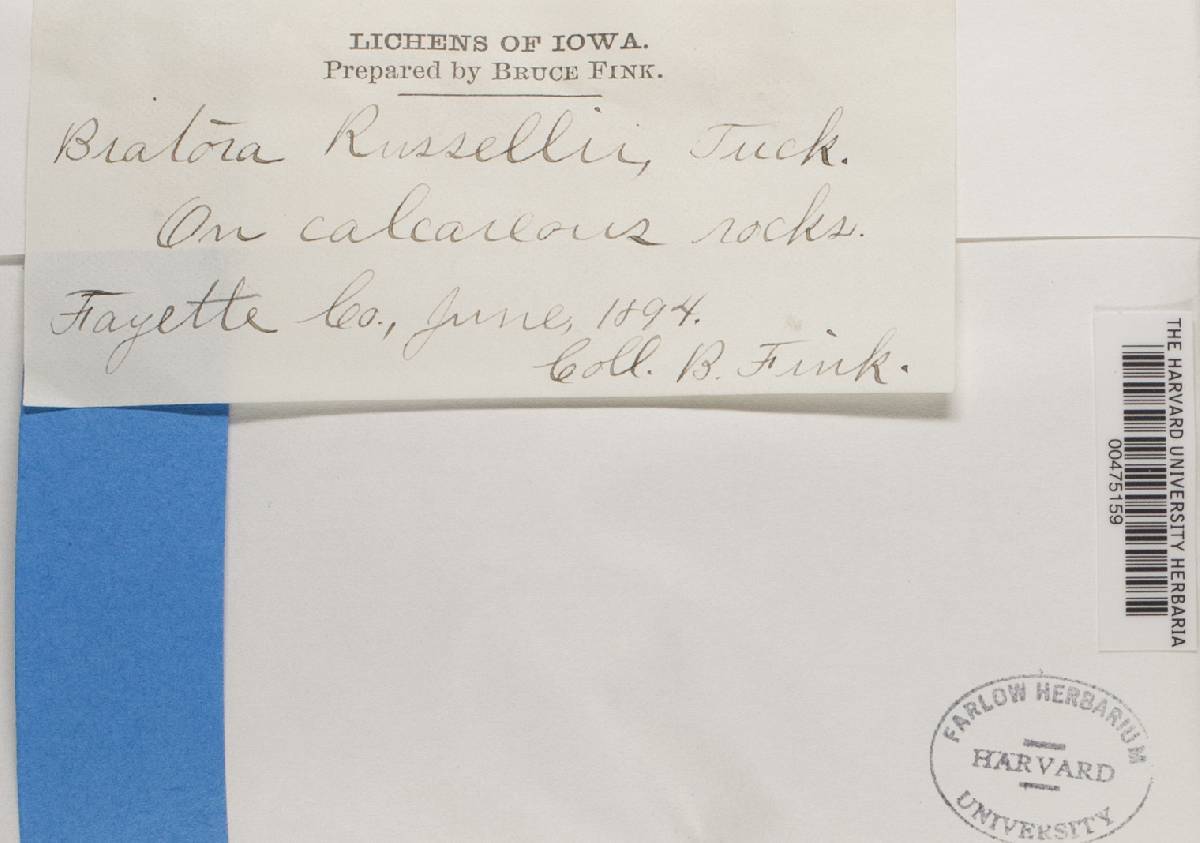 LICHENS OF IOWA.
Prepared by BRUCE FINK.
Biatora Russellii, Tuck.
On calcareous rocks.
Fayette Co., June, 1894.
Coll. B. Fink.
THE HARVARD UNIVERSITY HERBARIA
00475159
FARLOW HERBARIUM
HARVARD
UNIVERSITY